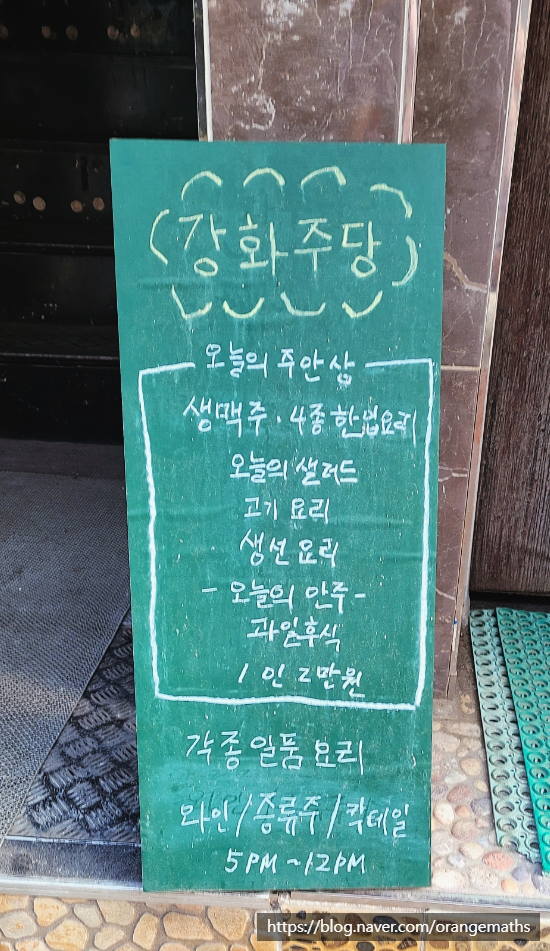 강화주당
오늘의 주안상
생맥주 · 4종 한입요리
오늘의 샐러드
고기 요리
생선 요리
- 오늘의 안주 -
과일후식
1인 2만원
각종 일품 요리
와인/증류주/칵테일
5PM ~ 12PM
https://blog.naver.com/orangemaths